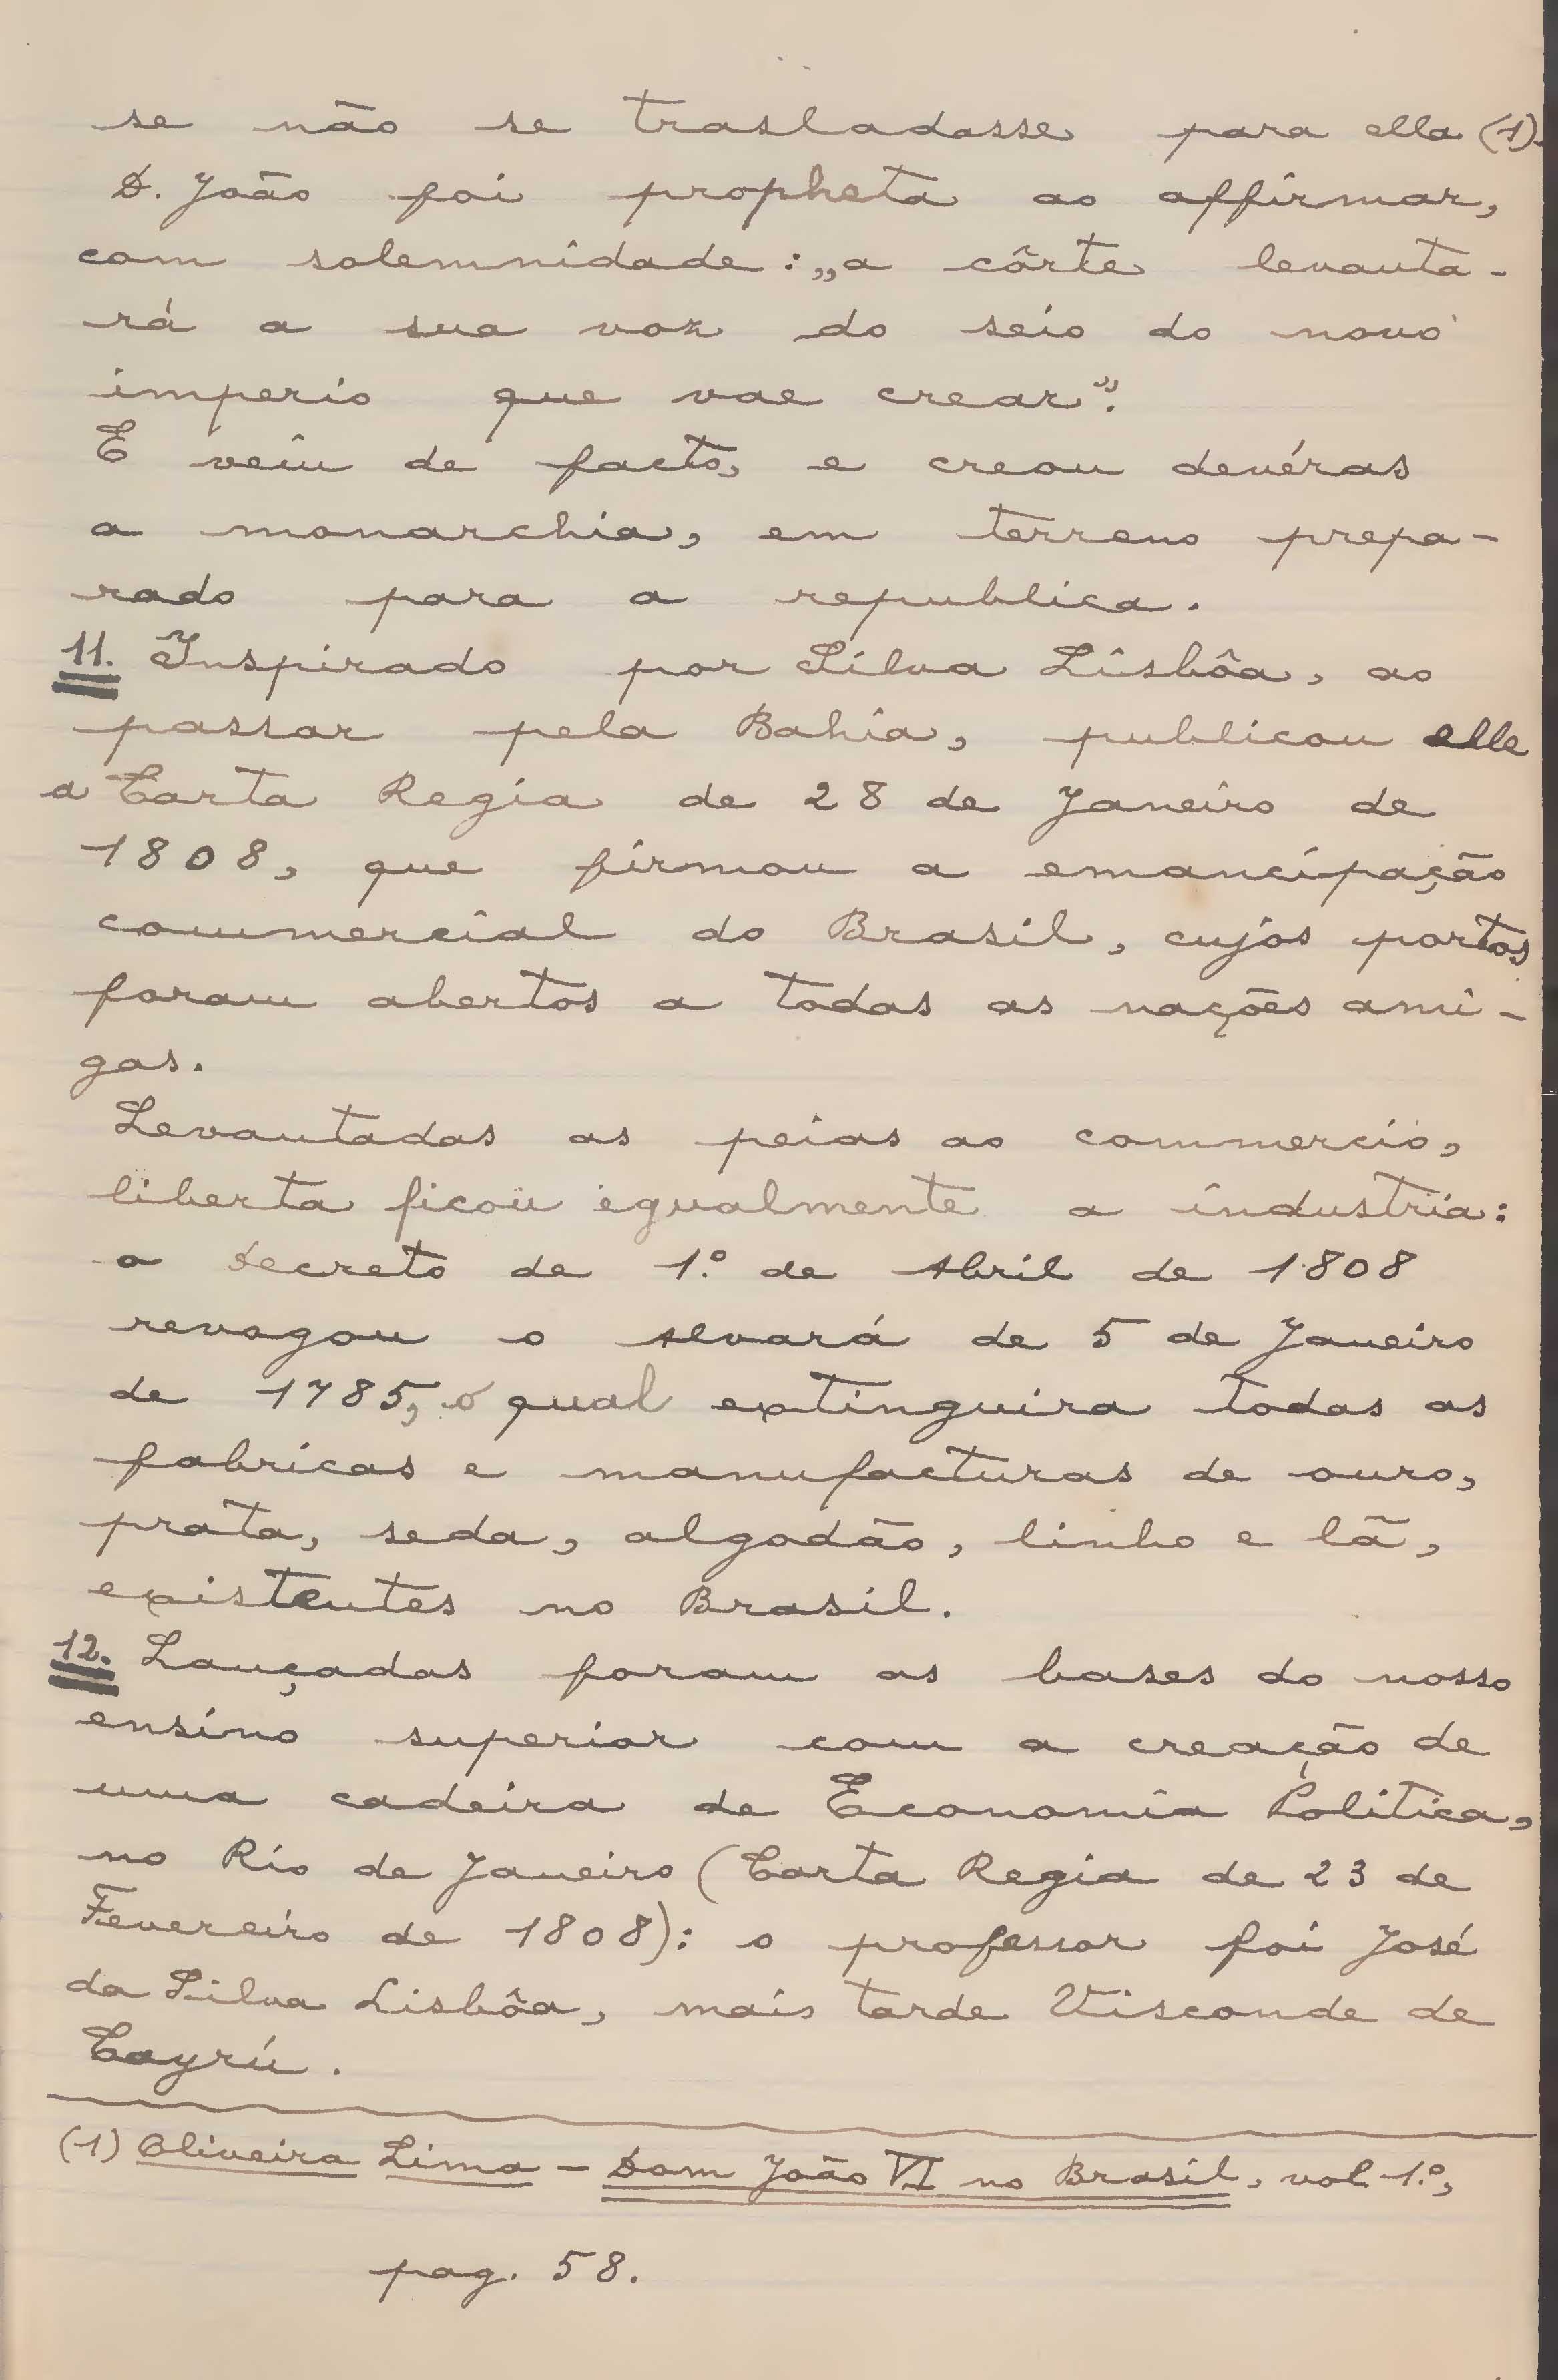 se não se trasladasse para ella (1).
D. João foi propheta ao affirmar,
com solemnidade: „a côrte levanta-
rá a sua voz do seio do novo
imperio que vae crear”.
E veiu de facto, e creou devéras
a monarchia, em terreno prepa-
rado para a republica.
11. Inspirado por Silva Lisbôa, ao
passar pela Bahia, publicou elle
a Carta Regia de 28 de Janeiro de
1808, que firmou a emancipação
commercial do Brasil, cujos portos
foram abertos a todas as nações ami-
gas.
Levantadas as peias ao commercio,
liberta ficou egualmente a industria:
o decreto de 1.º de Abril de 1808
revogou o Alvará de 5 de Janeiro
de 1785, o qual extinguira todas as
fabricas e manufacturas de ouro,
prata, seda, algodão, linho e lã,
existentes no Brasil.
12. Lançadas foram as bases do nosso
ensino superior com a creação de
uma cadeira de Economia Politica,
no Rio de Janeiro (Carta Regia de 23 de
Fevereiro de 1808): o professor foi José
da Silva Lisbôa, mais tarde Visconde de
Cayrú.
(1) Oliveira Lima – Dom João VI no Brasil, vol. 1.º,
pag. 58.